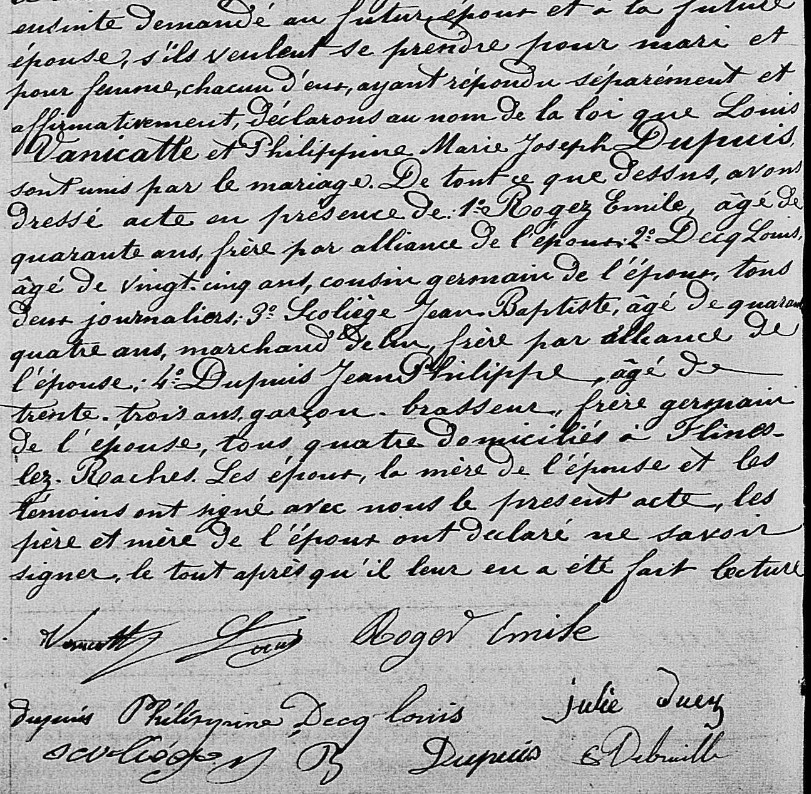 ensuite demandé au futur époux et à la future
épouse, s'ils veulent se prendre pour mari et
pour femme, chacun d'eux, ayant répondu séparément et
affirmativement, déclarons au nom de la loi que Louis
Vanicatte et Philippine Marie Joseph Dupuis,
sont unis par le mariage. De tout ce que dessus, avons
dressé acte en présence de: 1º Rogez Emile, âgé de
quarante ans, frère par alliance de l'époux; 2º Decq Louis,
âgé de vingt-cinq ans, cousin germain de l'époux, tous
deux journaliers; 3º Scoliège Jean-Baptiste, âgé de quarante
quatre ans, marchand de lin, frère par alliance de
l'épouse; 4º Dupuis Jean Philippe, âgé de
trente-trois ans, garçon-brasseur, frère germain
de l'épouse, tous quatre domiciliés à Flines-
lez-Raches. Les époux, la mère de l'épouse et les
témoins ont signé avec nous le present acte, les
père et mère de l'époux ont déclaré ne savoir
signer, le tout après qu'il leur en a été fait lecture
Louis Roger Emile
dupuis Philippine Decq louis julie
Dupuis